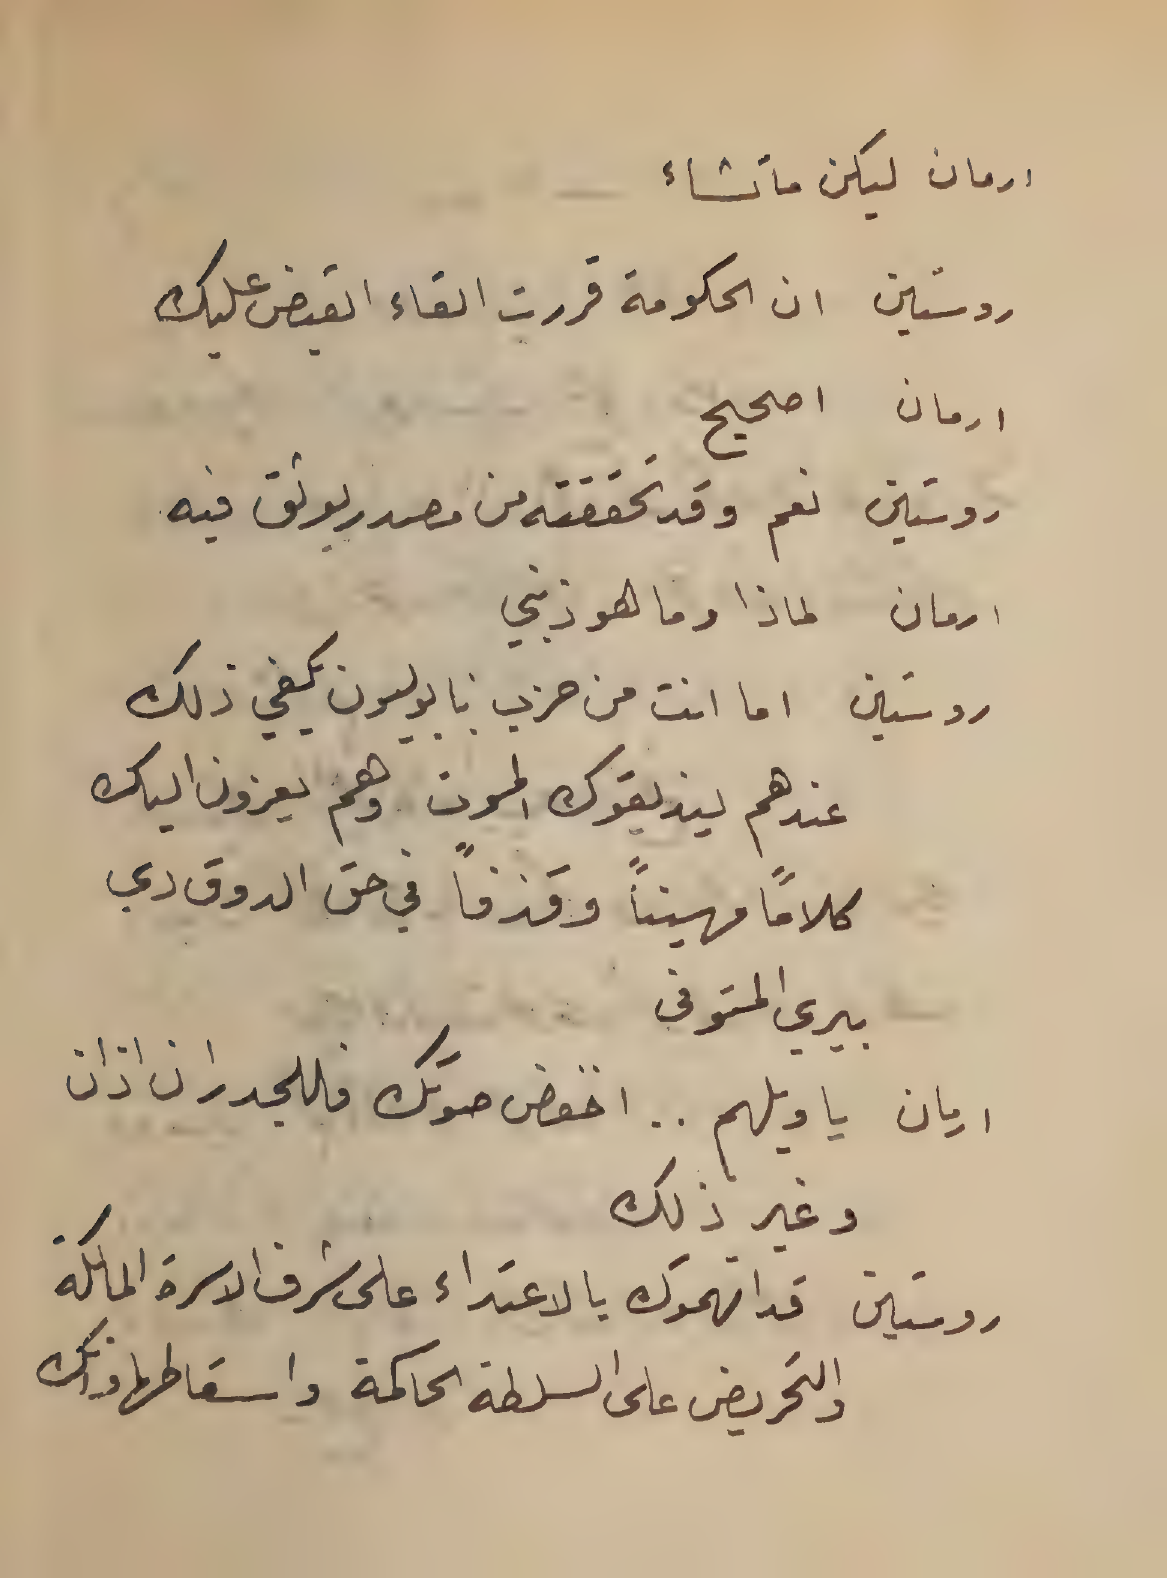 ارمان ليكن ما تشاء
روستين ان الحكومة قررت القاء القبض عليك
ارمان اصحيح
روستين نعم وقد تحققته من مصدر يوثق فيه
ارمان لماذا وما هو ذنبي
روستين اما انت من حزب نابوليون يكفي ذلك
عندهم ليذيقوك الموت وهم يعزون اليك
كلاماً مهيناً وقذفاً في حق الدوق دي
بيري المتوفى
ارمان يا ويلهم .. اخفض صوتك فللجدران اذان
وغير ذلك
روستين قد اتهموك بالاعتداء على شرف الاسرة المالكة
والتحريض على السلطة الحاكمة واسقاطها